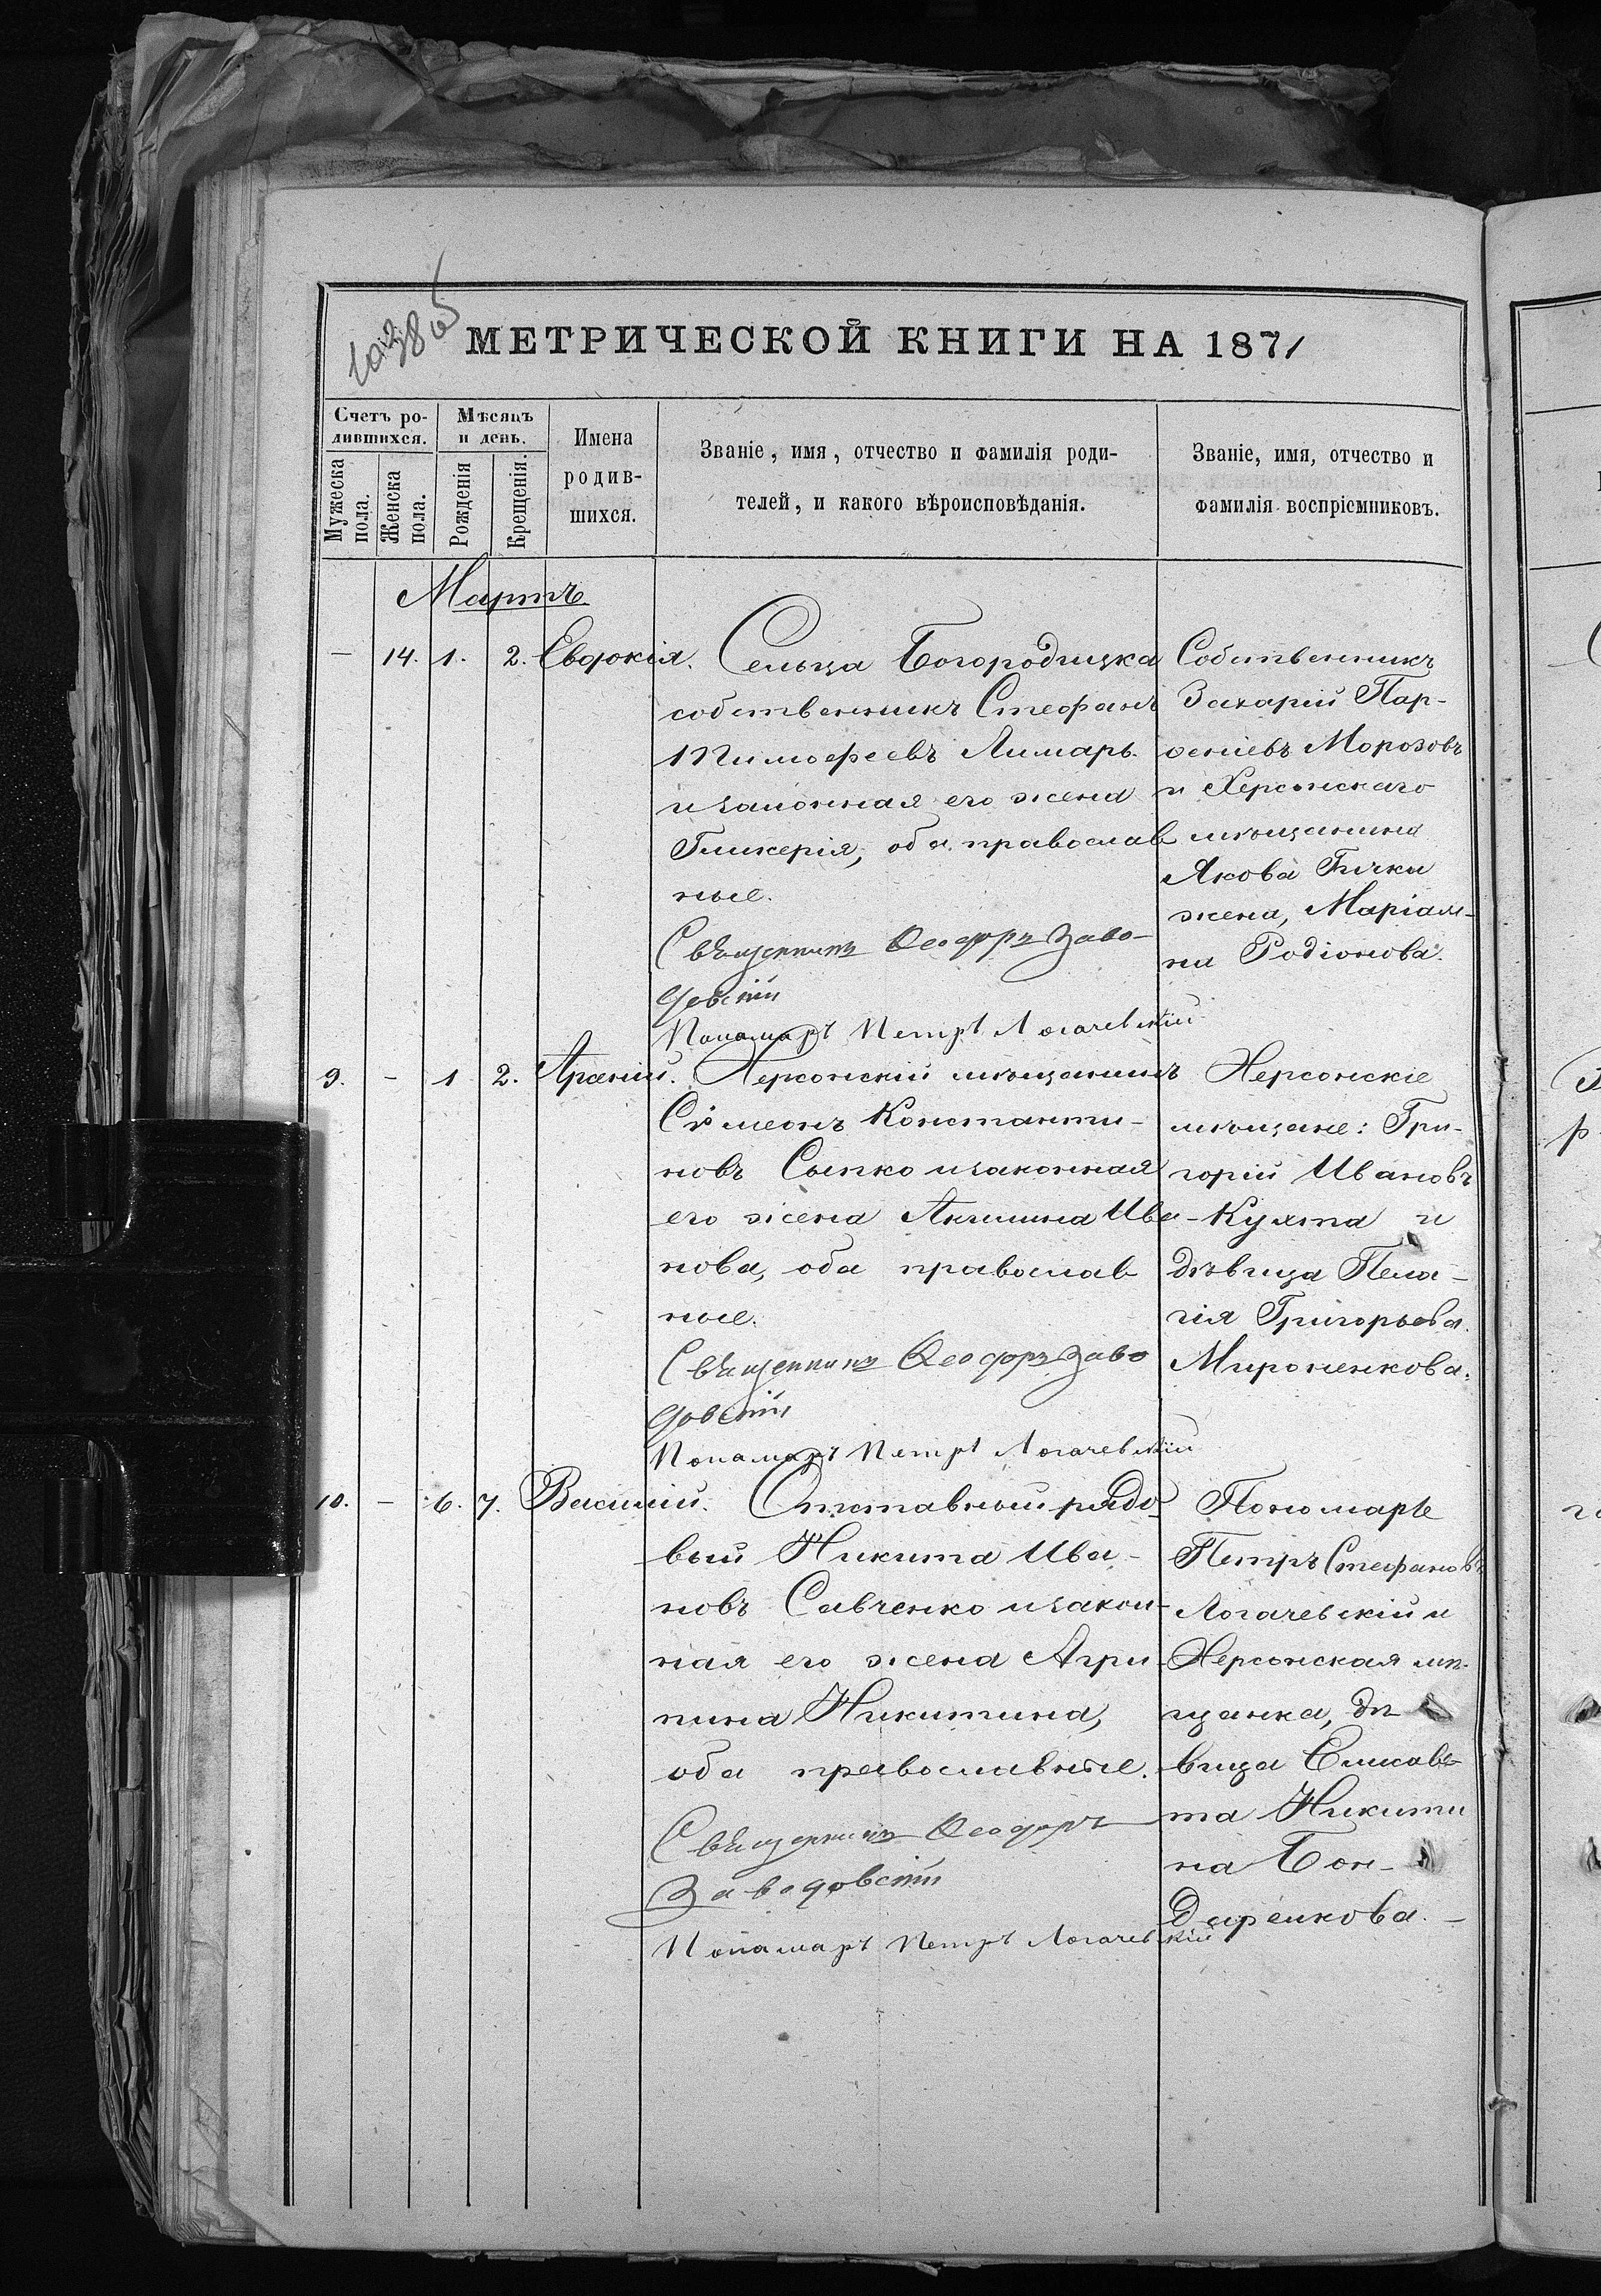 МЕТРИЧЕСКОЙ КНИГИ НА 1871
Счетъ ро-
дившихся.
Мужеска
пола.
Женска
пола.
Мѣсяцъ
и день.
Рожденія
Крещенія.
Имена
родив-
шихся.
Званіе, имя, отчество и фамилія роди-
телей, и какого вѣроисповѣданія.
Званіе, имя, отчество и
фамилія воспріемниковъ.
Мартъ
— 14. 1. 2. Евдокія.
Сельца Богородицка
собственникъ Стефанъ
Тимофеевъ Лимарь
и законная его жена
Гликерія, оба православ
ные.
Священникъ Ѳеодоръ Заво-
довскій
Понамарь Петръ Логачевскій
Собственникъ
Захарій Пар-
ѳеніевъ Морозовъ
и Херсонскаго
мѣщанина
Якова Гички
жена, Маріам-
на Родіонова.
9. — 1 2. Арсеній.
Херсонскій мѣщанинъ
Сѵмеонъ Константи-
новъ Сыпко и законная
его жена Акилина Ива-
нова, оба православ
ные.
Священникъ Ѳеодоръ Заво
довскій
Понамарь Петръ Логачевскій
Херсонскіе
мѣщане: Гри-
горій Ивановъ
Кухта и
дѣвица Пела-
гія Григорьева
Мироненкова.
10. — 6. 7. Василій.
Отставный рядо-
вый Никита Ива-
новъ Савченко и закон-
ная его жена Агри-
пина Никитина,
оба православные.
Священникъ Ѳеодоръ
Заводовскій
Понамарь Петръ Логачевскій
Пономарь
Петръ Стефановъ
Логачевскій и
Херсонская мѣ-
щанка, дѣ
вица Елисаве-
та Никити
на Бон-
даренкова. —